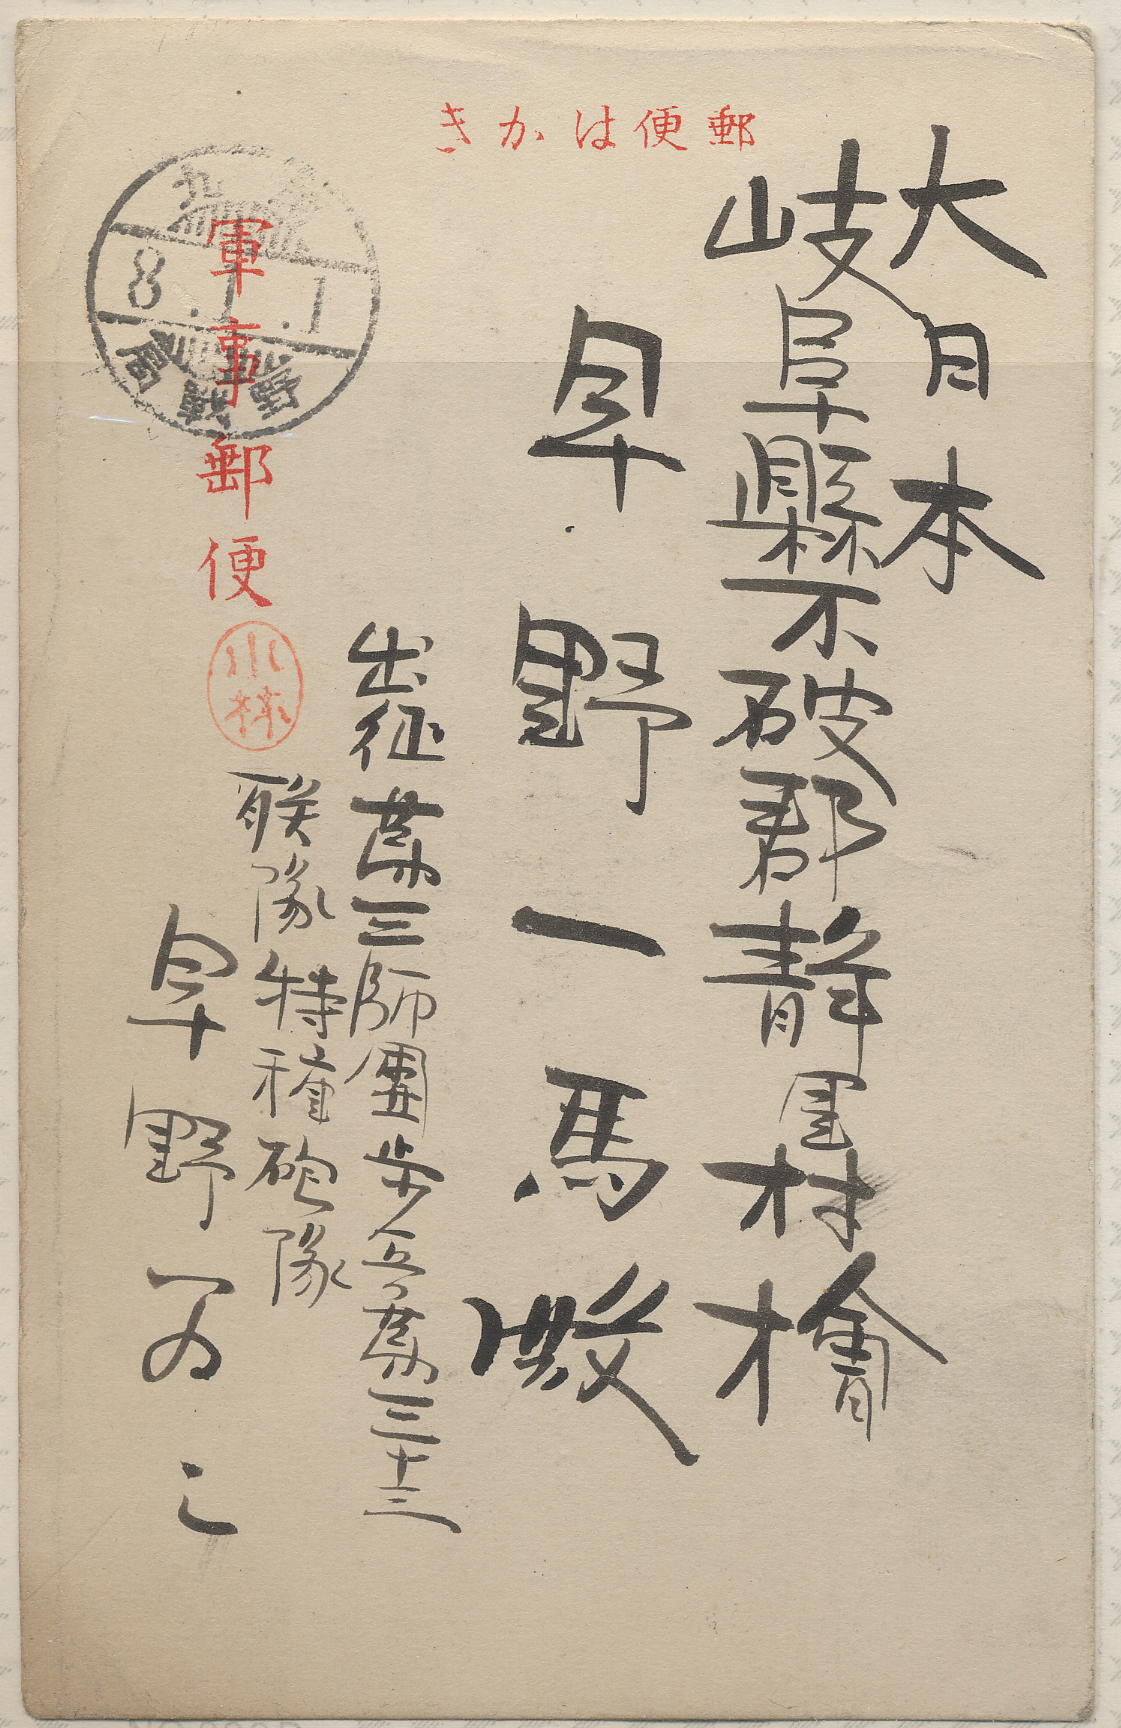 郵便はかき
大日本
岐阜縣不破郡静里村檜
早野一馬殿
軍事郵便
小林
出征第三師團歩兵第三十三
聯隊特種砲隊
早野
野戰局